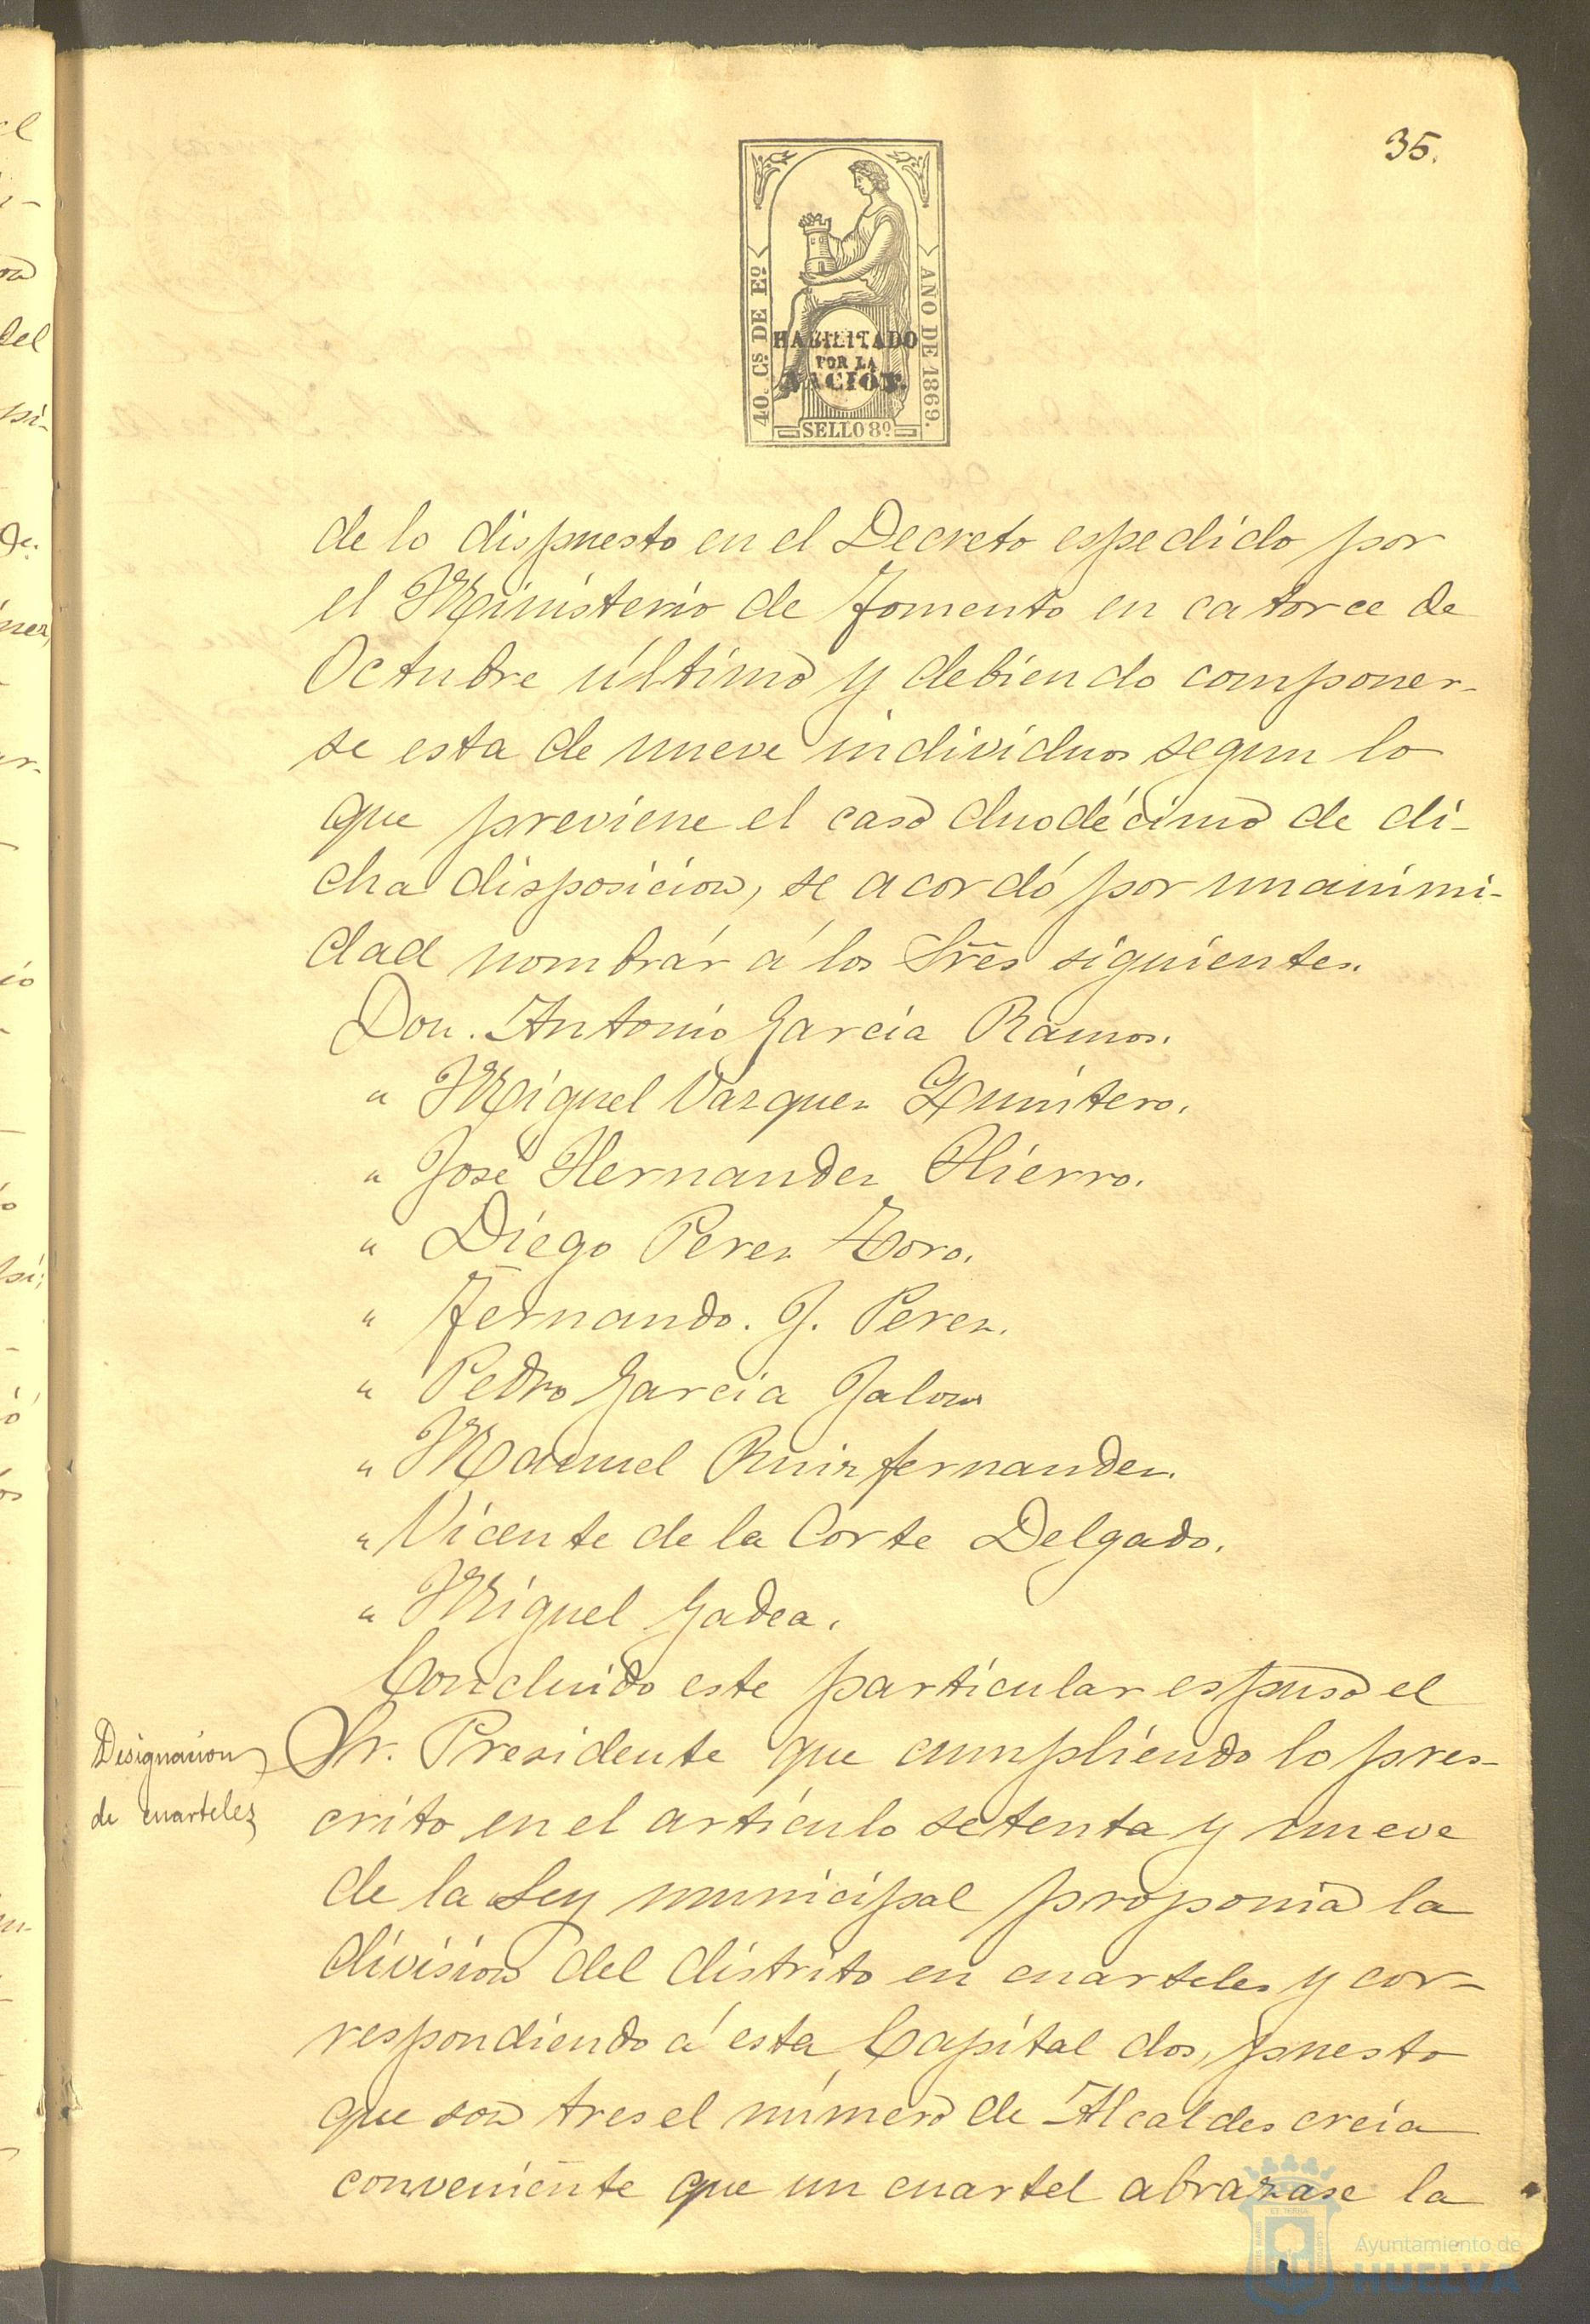 35.
40. Cs. DE Eo.
AÑO DE 1869.
HABILITADO
POR LA
NACIÓN.
SELLO 8º
de lo dispuesto en el Decreto espedido por
el Ministerio de Fomento en catorce de
Octubre último y debiendo componer-
se esta de nueve individuos segun lo
que previene el caso duodécimo de di-
cha disposicion, se acordó por unanimi-
dad nombrár á los Sres siguientes.
Don. Antonio Garcia Ramos.
" Miguel Vazquez Quintero.
" José Hernandez Hierro.
" Diego Perez Toro.
" Fernando. J. Perez.
" Pedro Garcia Jalon
" Manuel Ruiz fernandez.
" Vicente de la Corte Delgado.
" Miguel Gadea.
Concluido este particular espuso el
Designacion
de cuarteles
Sr. Presidente que cumpliendo lo pres-
crito en el artículo setenta y nueve
de la Ley municipal proponia la
division del distrito en cuarteles y cor-
respondiendo á esta Capital dos, puesto
que son tres el número de Alcaldes creia
conveniente que un cuartel abrazase la
Ayuntamiento de
HUELVA